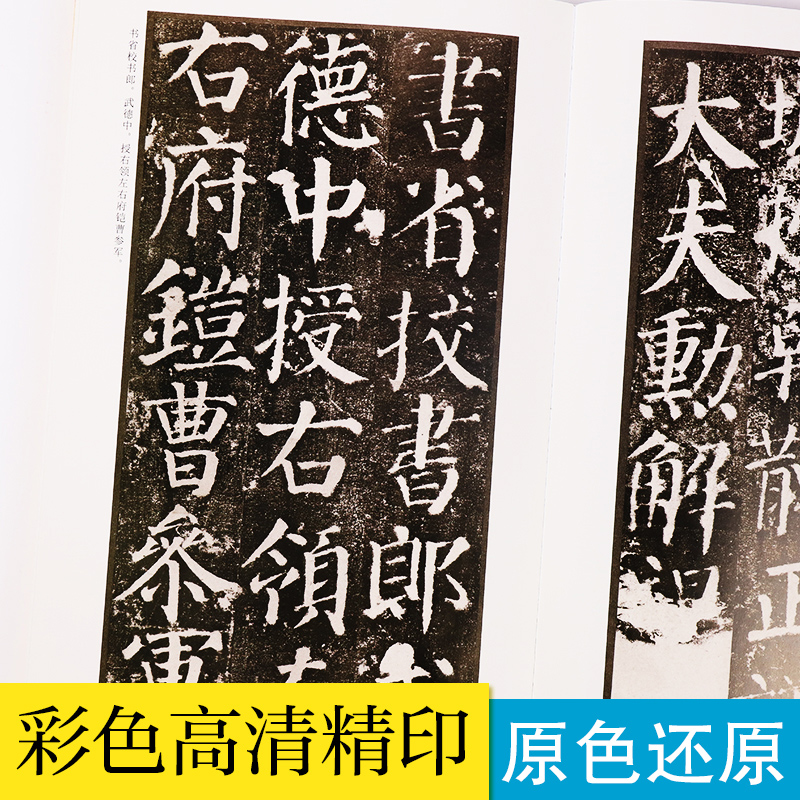 朝散正
大夫勳解
書省挍書郎
德中授右領
右府鎧曹叅軍
书省校书郎。武德中，授右领左右府铠曹参军。
彩色高清精印
原色还原